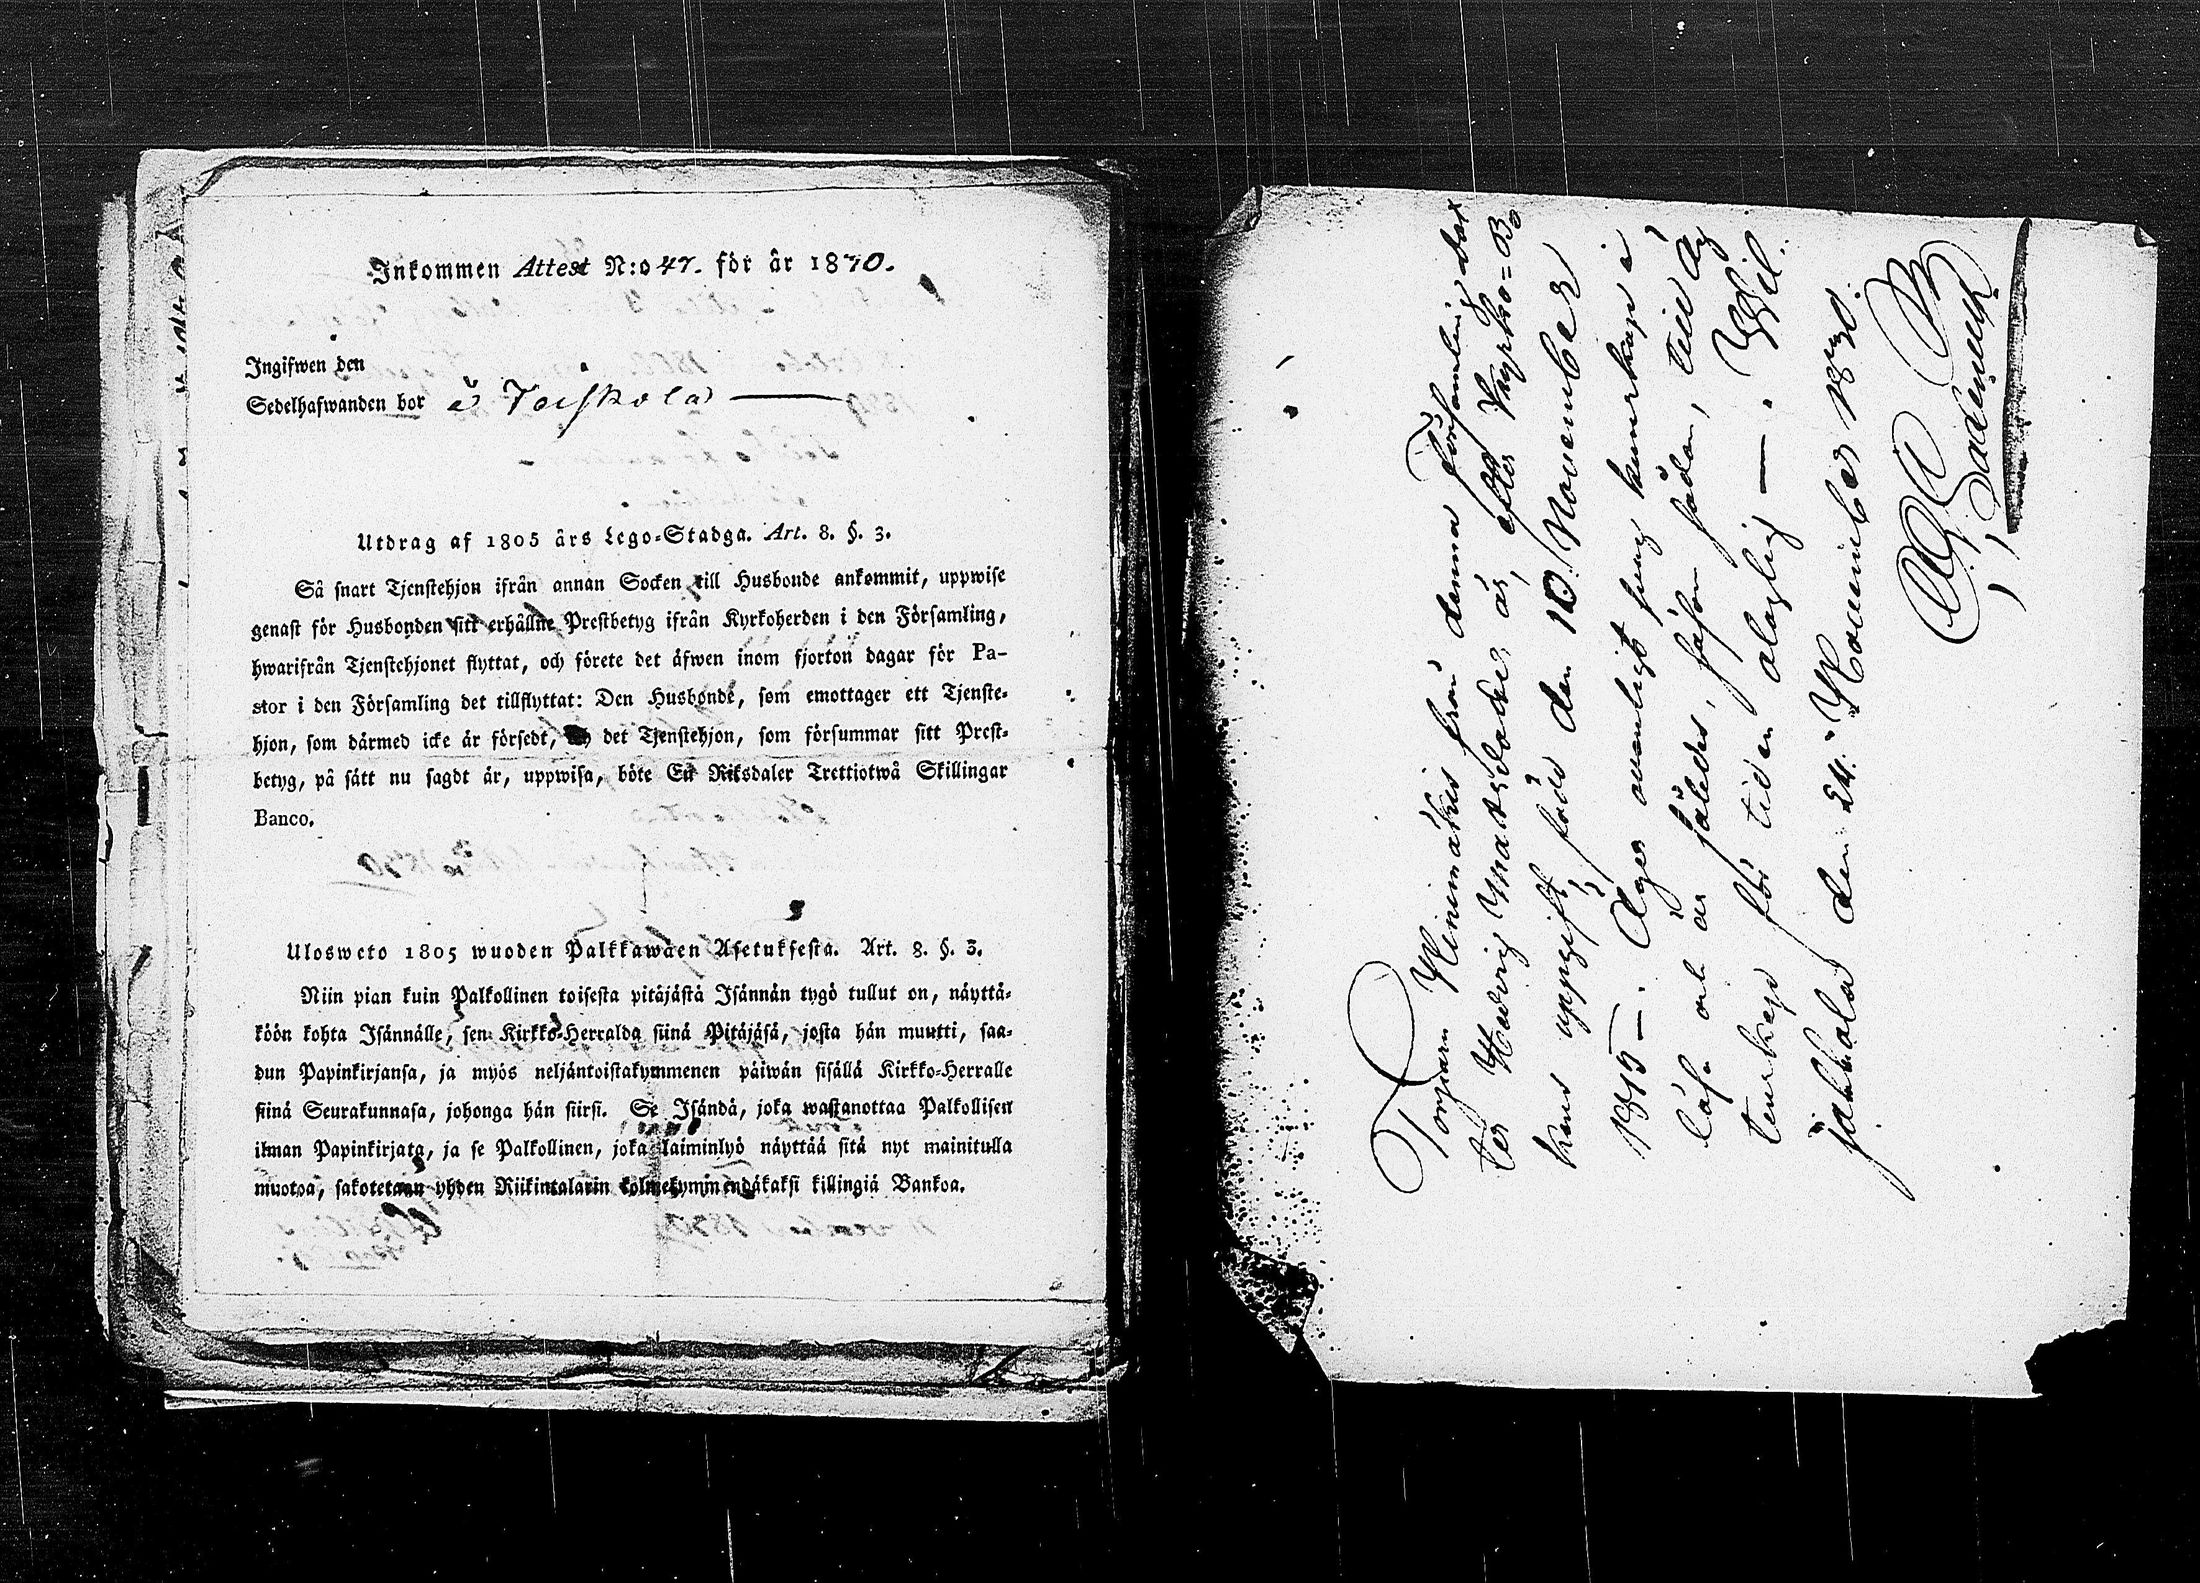 Inkommen Attest N:o 47. för år 1870.
Ingifwen den
Sedelhafwanden bor å Toiskola
Utdrag af 1805 års Lego-Stadga. Art. 8. §. 3.
Så snart Tjenstehjon ifrån annan Socken till Husbonde ankommit, uppwise
genast för Husbonden sitt erhållne Prestbetyg ifrån Kyrkoherden i den Församling,
hwarifrån Tjenstehjonet flyttat, och förete det äfwen inom fjorton dagar för Pa-
stor i den Församling det tillflyttat: Den Husbonde, som emottager ett Tjenste-
hjon, som därmed icke är försedt, det Tjenstehjon, som försummar sitt Prest-
betyg, på sätt nu sagdt är, uppwisa, böte En Riksdaler Trettiotwå Skillingar
Banco.
Ulosweto 1805 wuoden Palkkawäen Asetuksesta. Art. 8. §. 3.
Niin pian kuin Palkollinen toisesta pitäjästä Isännän tygö tullut on, näyttä-
köön kohta Isännälle, sen Kirkko-Herralda siinä Pitäjäsä, josta hän muutti, saa-
dun Papinkirjansa, ja myös neljäntoistakymmenen päiwän sisällä Kirkko-Herralle
siinä Seurakunnasa, johonga hän siirsi. Se Isändä, joka wastanottaa Palkollisen
ilman Papinkirjata, ja se Palkollinen, joka laiminlyö näyttää sitä nyt mainitulla
muotoa, sakotetaan yhden Riikintalarin kolmekymmendäkaksi killingiä Bankoa.
Torparn från denna Församling dot
ter Hedvig Matsdotter är, efter Kyrko=Bo
kens uppgift, född den 10 November
1815 —. Äger svenligt kunskap i
läsa och är således, såsom sådan, till Äg
tenskap för tiden oläglig —.
jakkala den 24. November 1870.